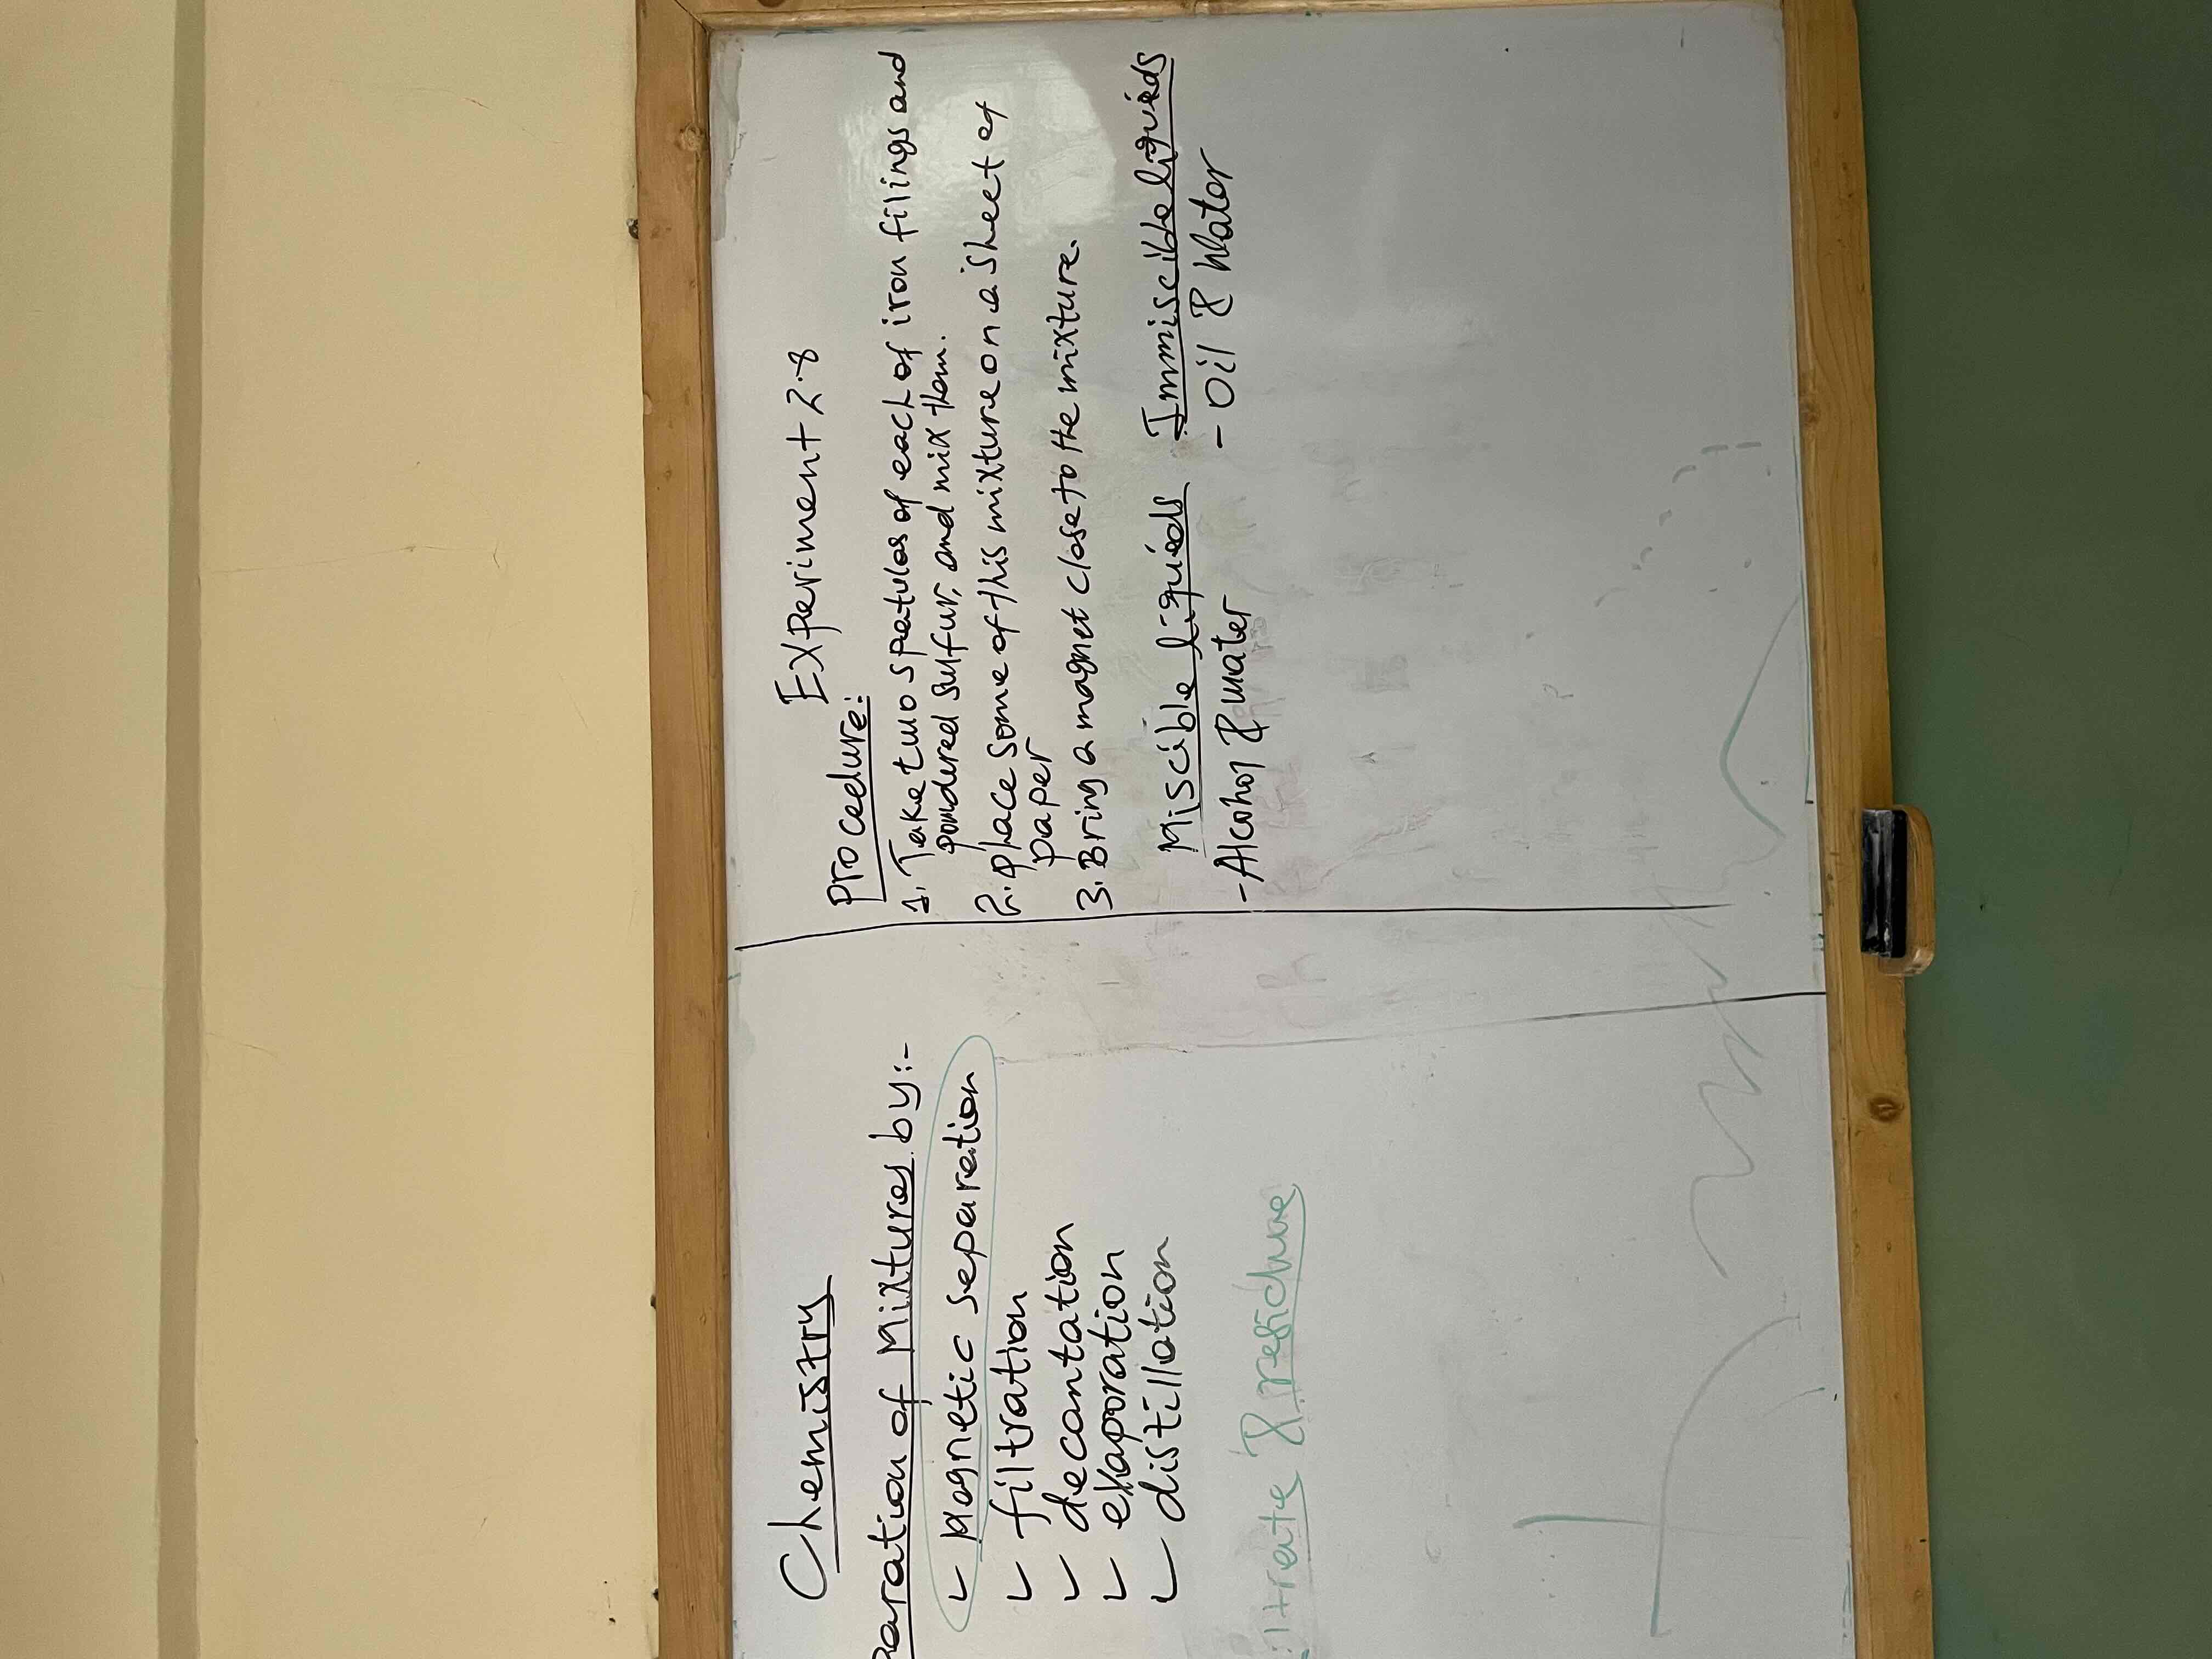 Chemistry
paration of Mixtures by:-
✓ Magnetic separation
✓ filtration
✓ decantation
✓ evaporation
✓ distillation
iltrate & residue
Experiment 2.8
Procedure:
1. Take two spatulas of each of iron filings and
powdered sulfur, and mix them.
2. place some of this mixture on a sheet of
paper
3. Bring a magnet close to the mixture.
Miscible liquids   Immiscible liquids
- Alcohol & water   - Oil & Water